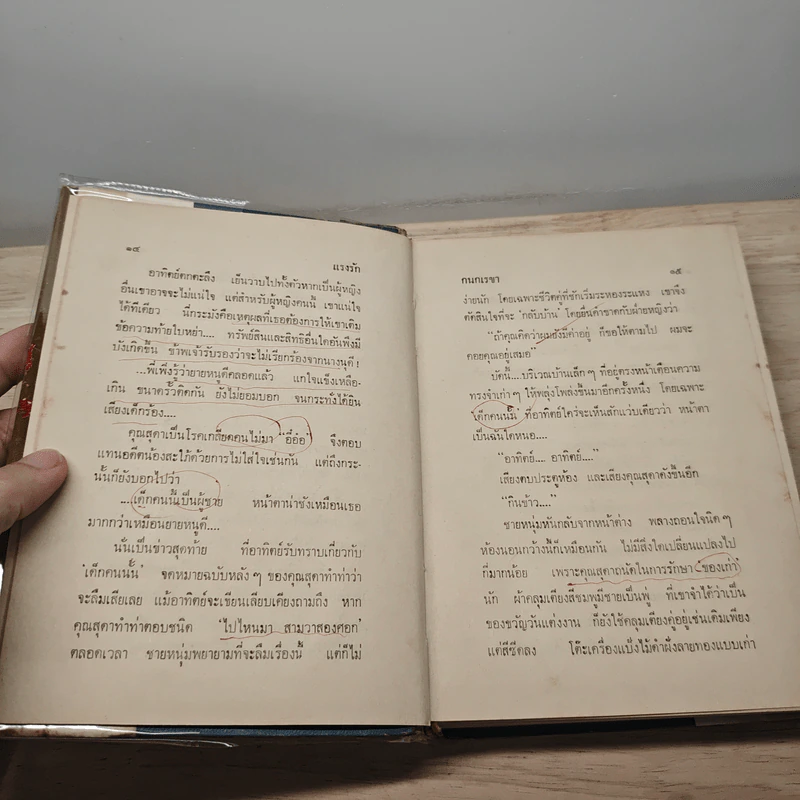 ๑๔
แรงรัก
อาทิตย์ตกตะลึง เย็นวาบไปทั้งตัวหากเป็นผู้หญิง
อื่นเขาอาจจะไม่แน่ใจ แต่สำหรับผู้หญิงคนนี้ เขาแน่ใจ
ได้ทีเดียว นี่กระมังคือเหตุผลที่เธอต้องการให้เขาเติม
ข้อความท้ายใบหย่า.... ทรัพย์สินและสิทธิอื่นใดอันพึงมี
บังเกิดขึ้น ข้าพเจ้ารับรองว่าจะไม่เรียกร้องจากนางนุดี !
...พี่เพิ่งรู้ว่ายายหนูดีคลอดแล้ว แกใจแข็งเหลือ-
เกิน ขนาดรั้วติดกัน ยังไม่ยอมบอก จนกระทั่งได้ยิน
เสียงเด็กร้อง....
คุณสุดาเป็นโรคเกลียดคนไม่มา “อี๋อ๋อ” จึงตอบ
แทนอดีตน้องสะใภ้ด้วยการไม่ใส่ใจเช่นกัน แต่ถึงกระ-
นั้นก็ยังบอกไปว่า
....เด็กคนนี้เป็นผู้ชาย หน้าตาน่าชังเหมือนเธอ
มากกว่าเหมือนยายหนูดี....
นั่นเป็นข่าวสุดท้าย ที่อาทิตย์รับทราบเกี่ยวกับ
‘เด็กคนนั้น’ จดหมายฉบับหลัง ๆ ของคุณสุดาทำท่าว่า
จะลืมเสียเลย แม้อาทิตย์จะเขียนเลียบเคียงถามถึง หาก
คุณสุดาทำท่าตอบชนิด ‘ไปไหนมา สามวาสองศอก’
ตลอดเวลา ชายหนุ่มพยายามที่จะลืมเรื่องนี้ แต่ก็ไม่
กนกเรขา
๑๕
ง่ายนัก โดยเฉพาะชีวิตคู่ที่ชักเริ่มระหองระแหง เขาจึง
ตัดสินใจที่จะ ‘กลับบ้าน’ โดยยื่นคำขาดกับม่ายหญิงว่า
“ถ้าคุณคิดว่าผมยังมีค่าอยู่ ก็ขอให้ตามไป ผมจะ
คอยคุณอยู่เสมอ”
บัดนี้....บริเวณบ้านเล็ก ๆ ที่อยู่ตรงหน้าเตือนความ
ทรงจำเก่า ๆ ให้พลุ่งโพล่งขึ้นมาอีกครั้งหนึ่ง โดยเฉพาะ
‘เด็กคนนั้น’ ที่อาทิตย์ใคร่จะเห็นสักแว่บเดียวว่า หน้าตา
เป็นฉันใดหนอ....
“อาทิตย์.... อาทิตย์....”
เสียงตบประตูห้อง และเสียงคุณสุดาดังขึ้นอีก
“กินข้าว....”
ชายหนุ่มหันกลับจากหน้าต่าง พลางถอนใจนิด ๆ
ห้องนอนกว้างนี้ก็เหมือนกัน ไม่มีสิ่งใดเปลี่ยนแปลงไป
กี่มากน้อย เพราะคุณสุดาถนัดในการรักษา ‘ของเก่า’
นัก ผ้าคลุมเตียงสีชมพูมีชายเป็นพู่ ที่เขาจำได้ว่าเป็น
ของขวัญวันแต่งงาน ก็ยังใช้คลุมเตียงคู่อยู่เช่นเดิมเพียง
แต่สีซีดลง โต๊ะเครื่องแป้งไม้ดำฝังลายทองแบบเก่า